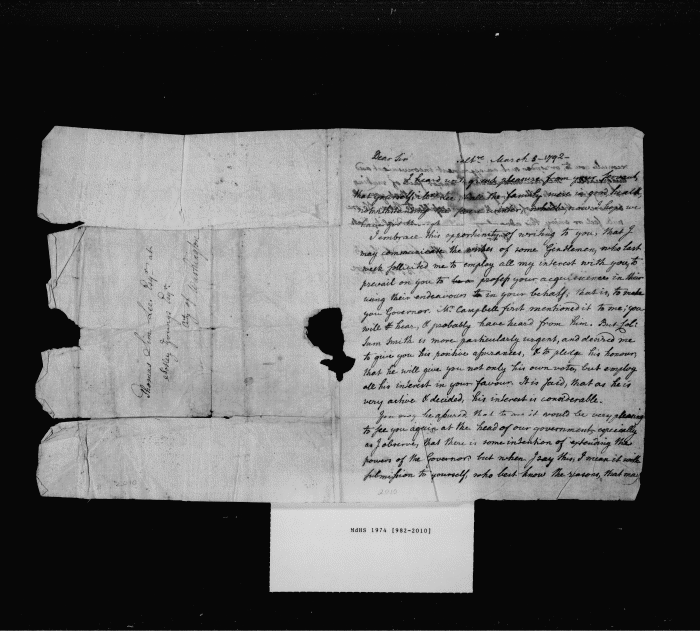 Dear Sir
March 3 - 1792 -
I heard with great pleasure from your
that you & the family were in good health
notwithstanding the
I embrace this opportunity of writing to you, that I
may communicate the wishes of some Gentlemen, who last
week sollicited me to employ all my interest with you, to
prevail on you to profess your acquiescence in their
using their endeavours to in your behalf; that is, to make
you Governor. Mr. Campbell first mentioned it to me; you
will hear, & probably have heard from him. But Col:
Sam Smith is more particularly urgent, and desired me
to give you his positive assurances, & to pledge his honour,
that he will give you not only his own vote, but employ
all his interest in your favour. It is said, that as he is
very active & decided, his interest is considerable.
You may be assured that to me it would be very pleasing
to see you again at the head of our government, especially
as I observe, that there is some intention of extending the
powers of the Governor: but when I say this, I mean it with
submission to yourself, who best know the reasons, that
Thomas Sim Lee Esqr. at
Notley Youngs Esqr.
City of Washington
MdHS 1974 [982-2010]